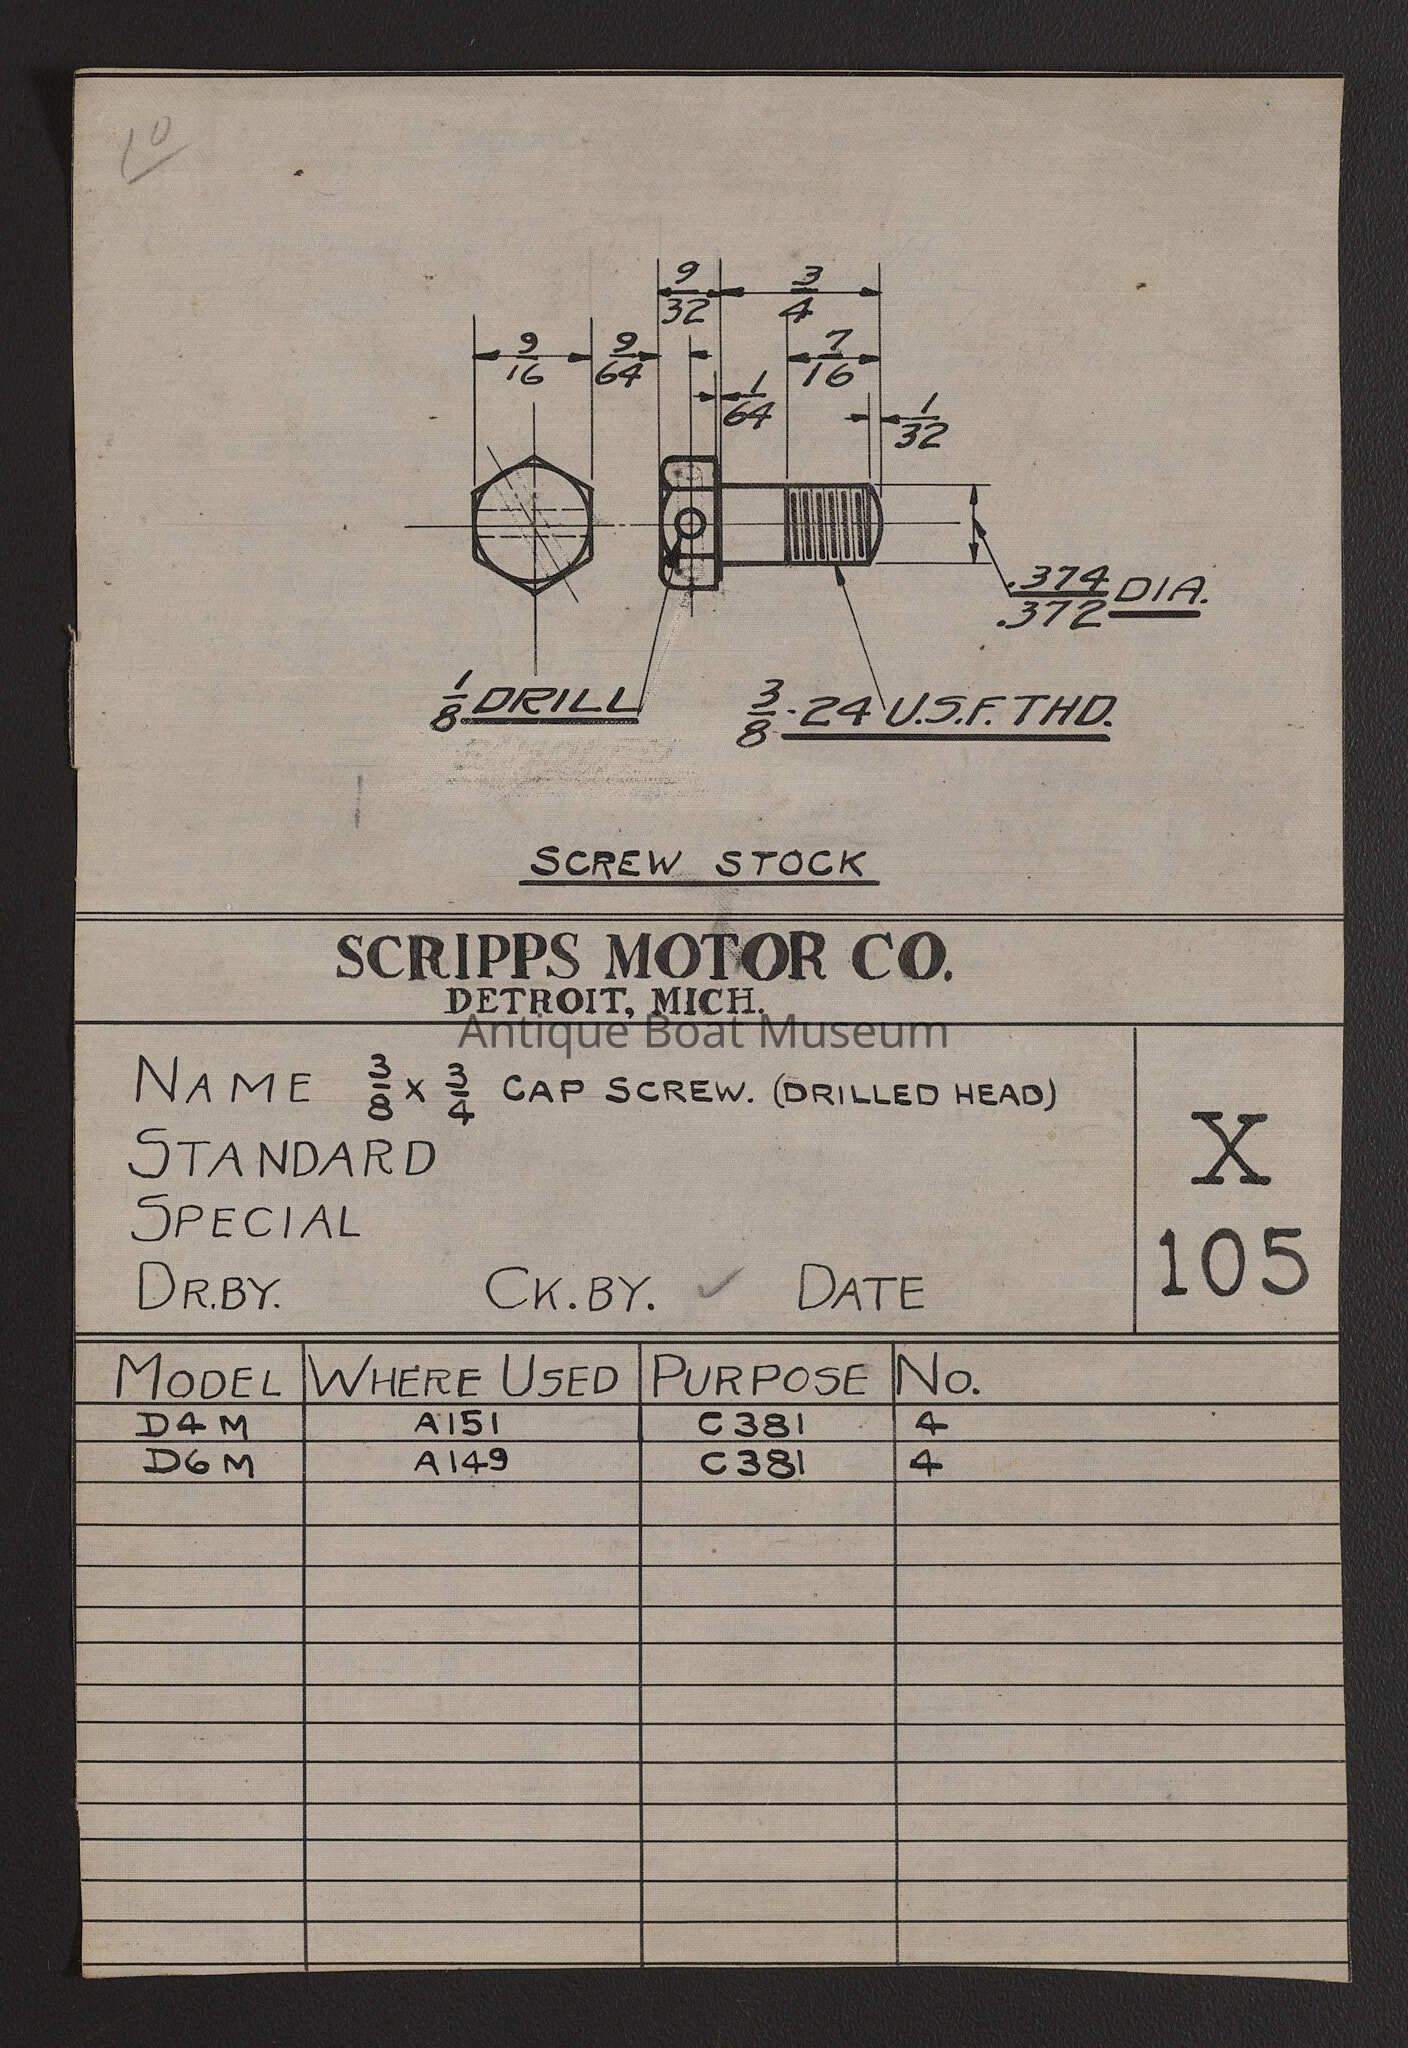 10
9/32 3/4
9/16 9/64 7/16
1/64
1/32
.374/.372 DIA.
1/8 DRILL
3/8-24 U.S.F. THD.
SCREW STOCK
SCRIPPS MOTOR CO.
DETROIT, MICH.
Antique Boat Museum
NAME 3/8 X 3/4 CAP SCREW. (DRILLED HEAD)
STANDARD
SPECIAL
DR.BY. CK.BY. ✓ DATE
X
105
MODEL WHERE USED PURPOSE NO.
D4M A151 C381 4
D6M A149 C381 4